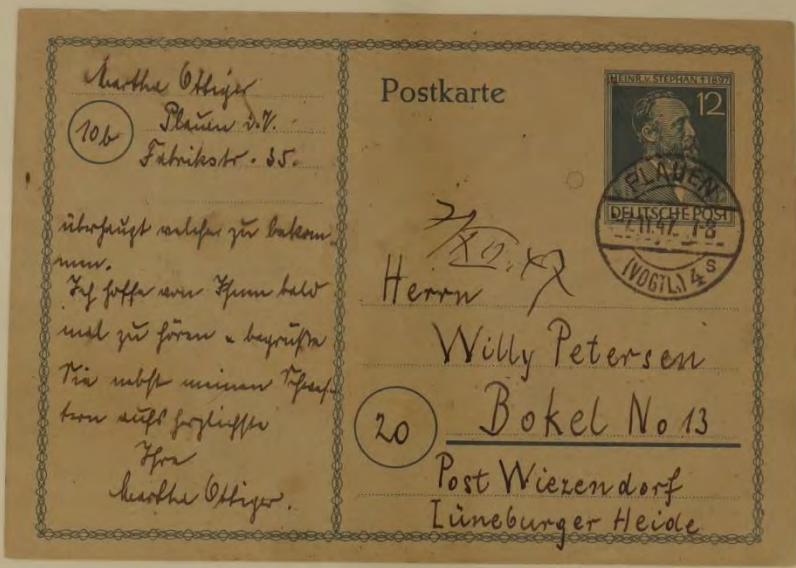 Martha Ottiger
10b
Plauen i.V.
Fabrikstr. 35.
überhaupt welche zu bekom-
men.
Ich hoffe von Ihnen bald
mal zu hören u begrüße
Sie nebst meinen Schwes-
tern aufs herzlichste
Ihre
Martha Ottiger.
Postkarte
HEINR. v. STEPHAN † 1897
12
DEUTSCHE POST
PLAUEN
11.47. 7-8
(VOGTL.) 4 s
Herrn
Willy Petersen
20
Bokel No 13
Post Wiezendorf
Lüneburger Heide